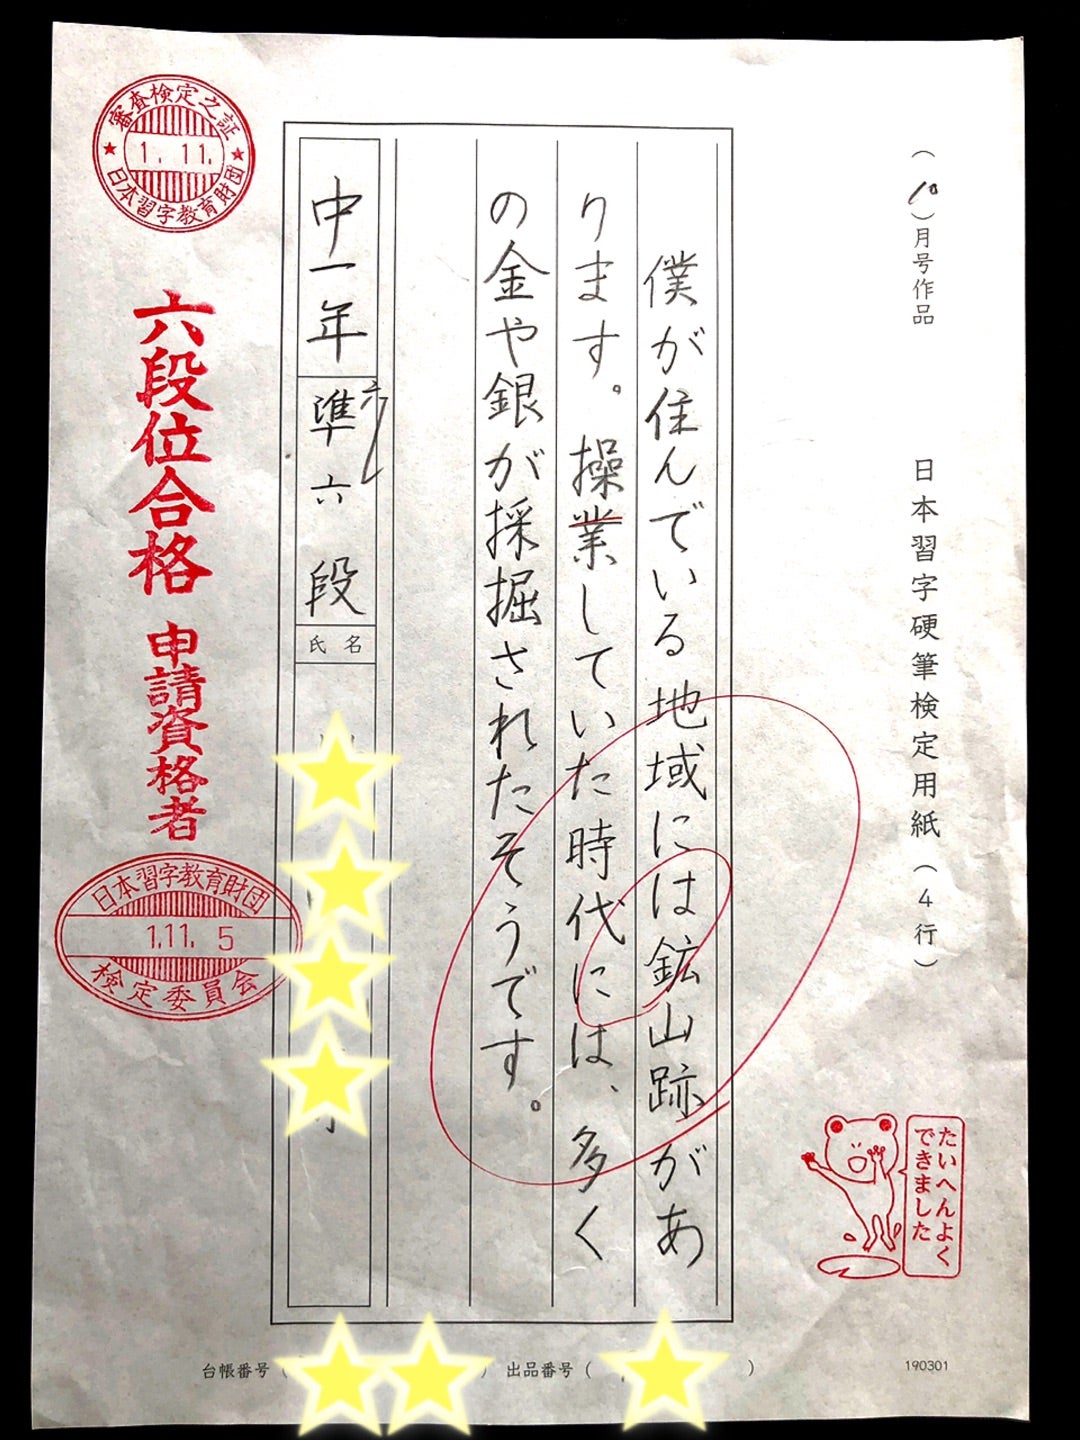 (10)月号作品
日本習字硬筆検定用紙(4行)
たいへんよく
できました
僕が住んでいる地域には鉱山跡があ
ります。操業していた時代には、多く
の金や銀が採掘されたそうです。
中一年 準六段
氏名
審査検定之証
1.11.
日本習字教育財団
六段位合格 申請資格者
日本習字教育財団
1.11.5
検定委員会
台帳番号( ) 出品番号( )
190301